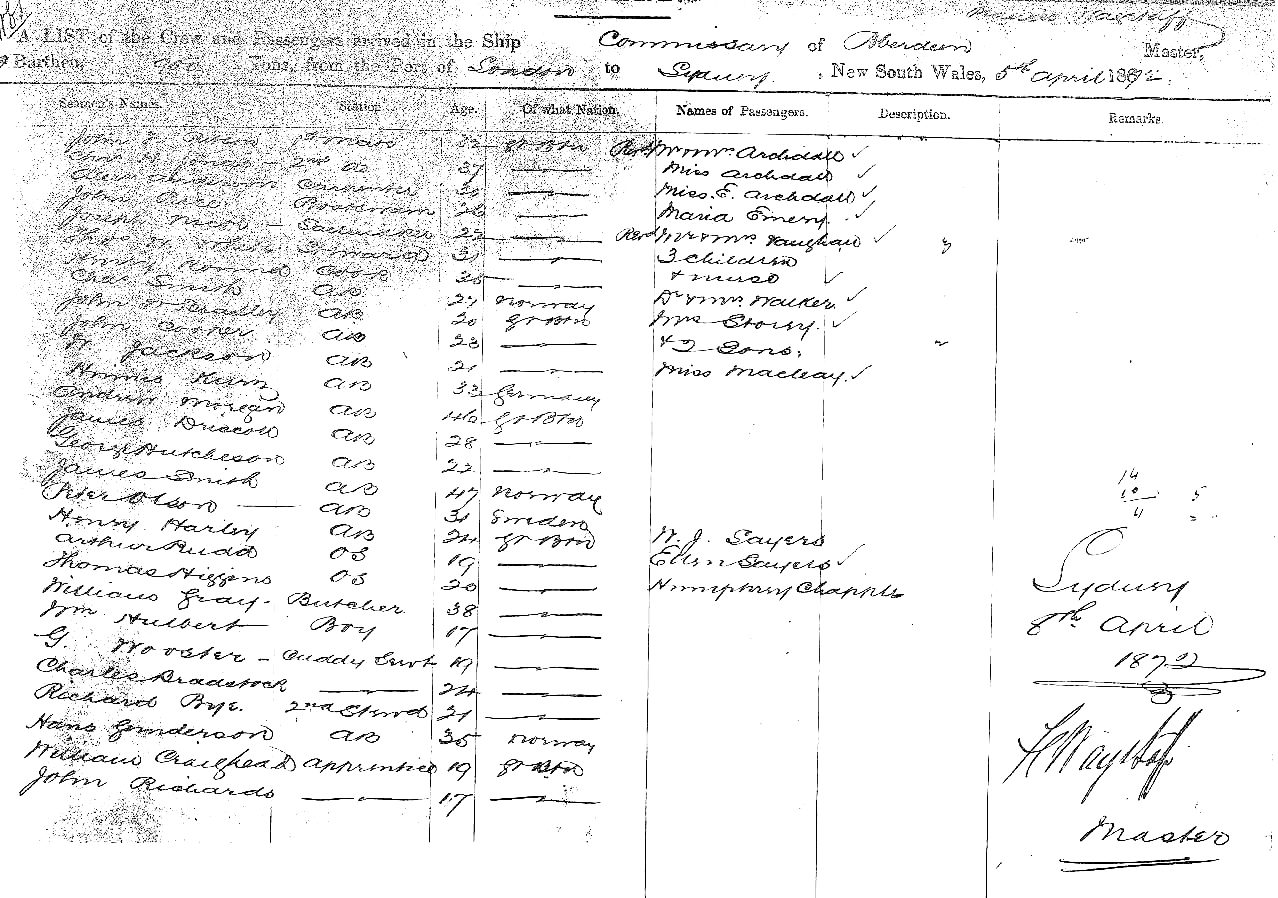 A LIST of the Crew and Passengers arrived in the Ship Commissary of Aberdeen Master,
Burthen, Tons, from the Port of London to Sydney, New South Wales, 5th April 1872.
Seamen's Names. Station Age. Of what Nation. Names of Passengers. Description. Remarks.
John 1st Mate 32 Gt Btn Revd Mr & Mrs Archdall ✓
Chas 2nd Do 37 — Miss Archdall ✓
Carpenter — Miss E. Archdall ✓
John Boatswain 26 — Maria Emery ✓
Joseph — Sailmaker 22 — Revd Mr & Mrs Vaughan ✓ 3
Thos Steward 31 — 3 children
Henry Cook 35 — + nurse ✓
Chas Smith AB 27 Norway Dr & Mrs Walker ✓
John W Bradley AB 20 Gt Btn Mrs Storey ✓
John Cooper AB 23 — + 2 Sons, 2
W Jackson AB 21 — Miss Macleay ✓
AB 33 Germany
Andrew Morgan AB 46 Gt Btn
James Driscoll AB 28 —
George Hutcheson AB 22 —
James Smith AB 47 Norway
Peter Olson — AB 31 Sweden
Henry Harley AB 24 Gt Btn W. J. Sayers
Arthur Rudd OS 19 — Ellen Sayers ✓
Thomas Higgens OS 20 — Humphrey Chapple
William Gray - Butcher 38 —
Wm Hulbert Boy 17 —
G. Wooster - Cuddy Servt 19 —
Charles Bradstock — 24 —
Richard Bye. 2nd Stewd 21 —
Hans Gunderson AB 35 Norway
William Craighead Apprentice 19 Gt Btn
John Richards — 17 —
14
10 5
4
Sydney
8th April
1872
Master